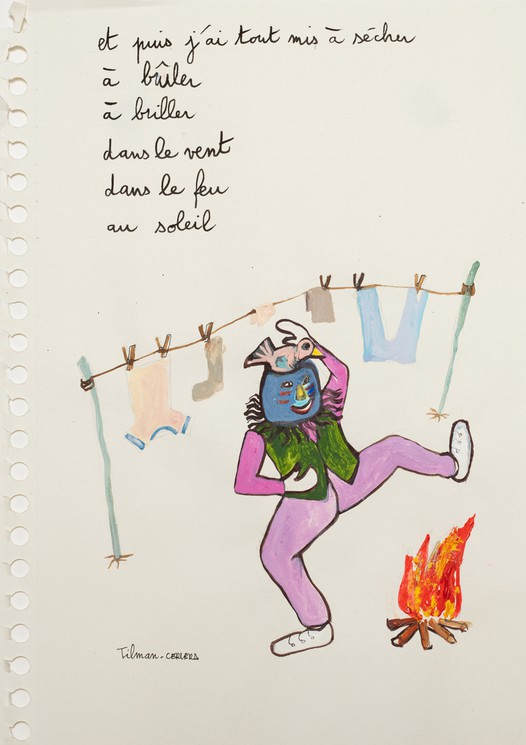 et puis j'ai tout mis à sécher
à brûler
à briller
dans le vent
dans le feu
au soleil
Tilman-CERVERA